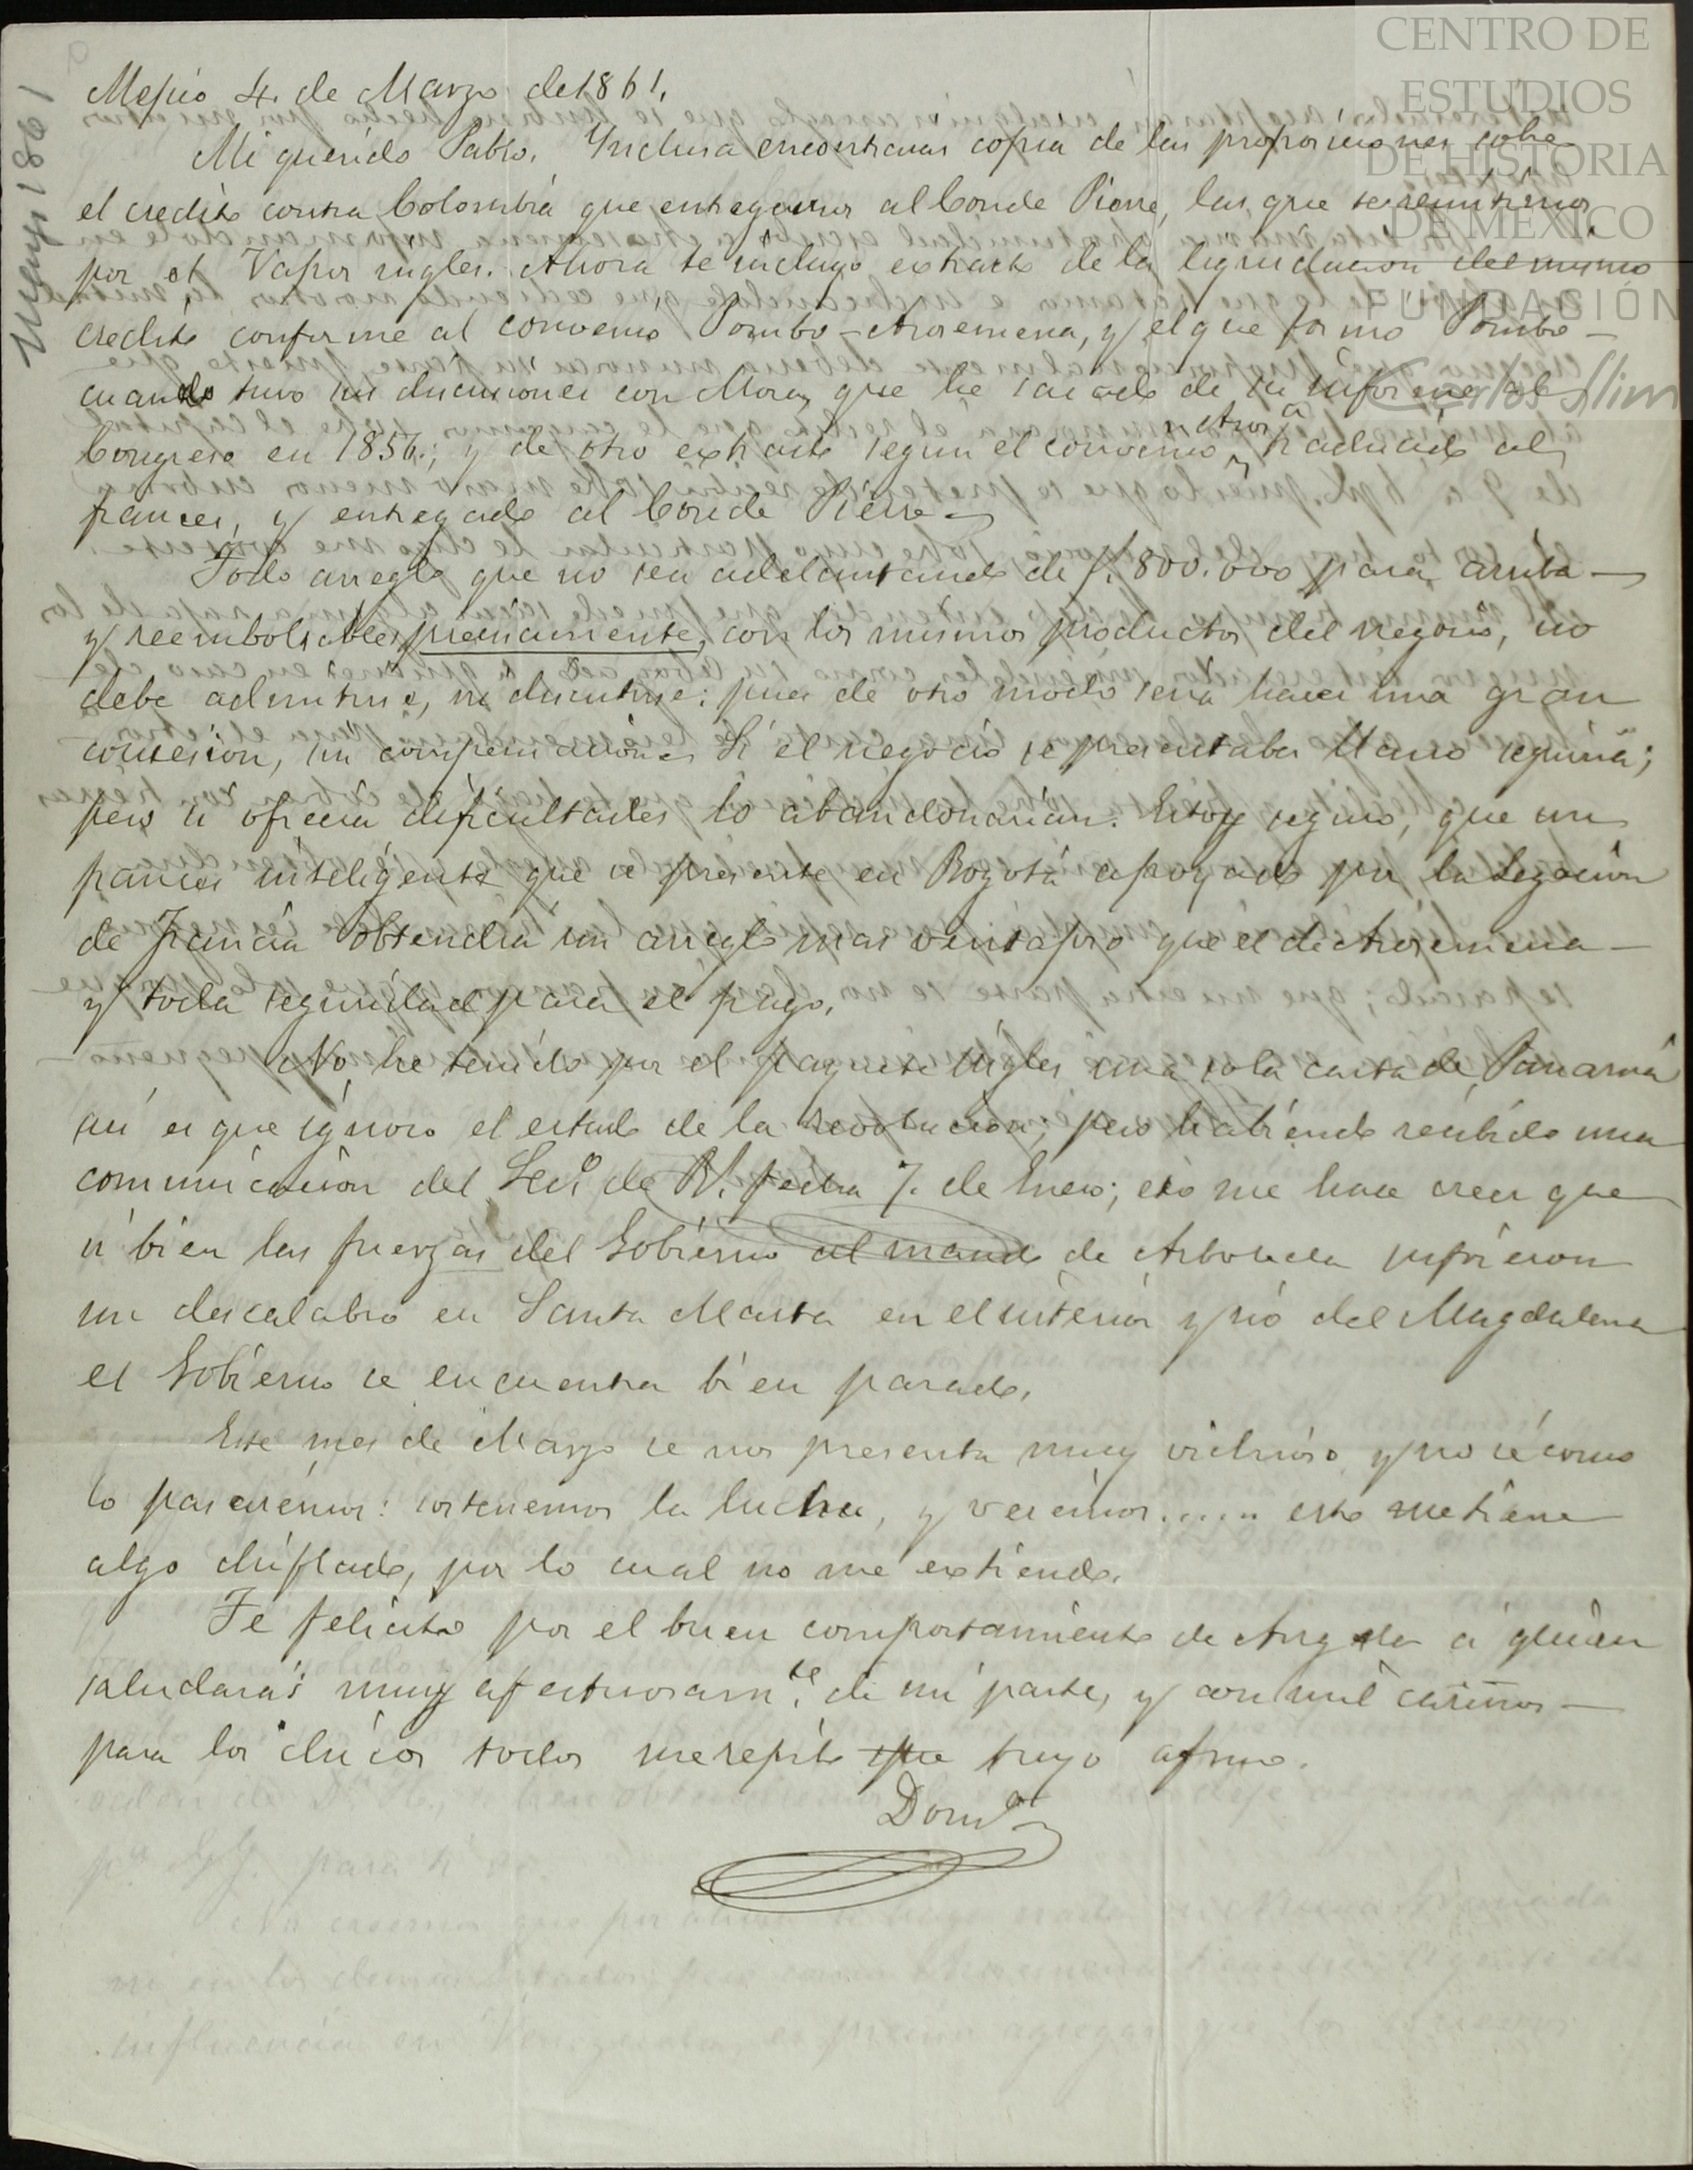 CENTRO DE
ESTUDIOS
DE HISTORIA
DE MÉXICO
FUNDACIÓN
Carlos Slim
Marzo 1861
Mejico 4. de Marzo de 1861.
Mi querido Pablo. Inclusa encontraras copia de las proposiciones sobe
el credito contra Colombia que entregamos al Conde Pierre, las que te remitimos
por el Vapor ingles. Ahora te incluyo extracto de la liquidacion del mismo
credito conforme al convenio Pombo-Arosemena, y el que formo Pombo
cuando tuvo sus discusiones con Mora, que he sacado de su informe al
Congreso en 1856.; y de otro extracto segun el convenio traducido al
frances, y entregado al Conde Pierre
Todo arreglo que no sea adelantando de f. 800.000 para arriba
y reembolsables precisamente, con los mismos productos del negocio, no
debe admitirse, ni discutirse: pues de otro modo seria hacer una gran
concesion, sin compensacion. Si el negocio se presentaba llano seguiria;
pero si ofrecia dificultades lo abandonarian. Estoy seguro, que un
frances inteligente que se presente en Bogotá apoyado por la Legacion
de Francia obtendra un arreglo mas ventajoso que el de Arosemena
y toda seguridad para el pago.
No he tenido por el paquete ingles una sola carta de Panamá
asi es que ignoro el estado de la revolucion; pero habiendo recibido una
comunicacion del Sec.o de R. fecha 7. de Enero; eso me hace creer que
si bien las fuerzas del Gobierno al mando de Arboleda sufrieron
un descalabro en Santa Marta en el interior y rio del Magdalena
el Gobierno se encuentra bien parado.
Este mes de Marzo se nos presenta muy vidrioso y no sé como
lo pasarémos: sostenemos la lucha, y verémos..... esto me tiene
algo chiflado, por lo cual no me extiendo.
Te felicito por el buen comportamiento de Angela á quien
saludarás muy afectuosam.te de mi parte, y con mil cariños
para los chicos todos me repito que tuyo afmo.
Dom.o